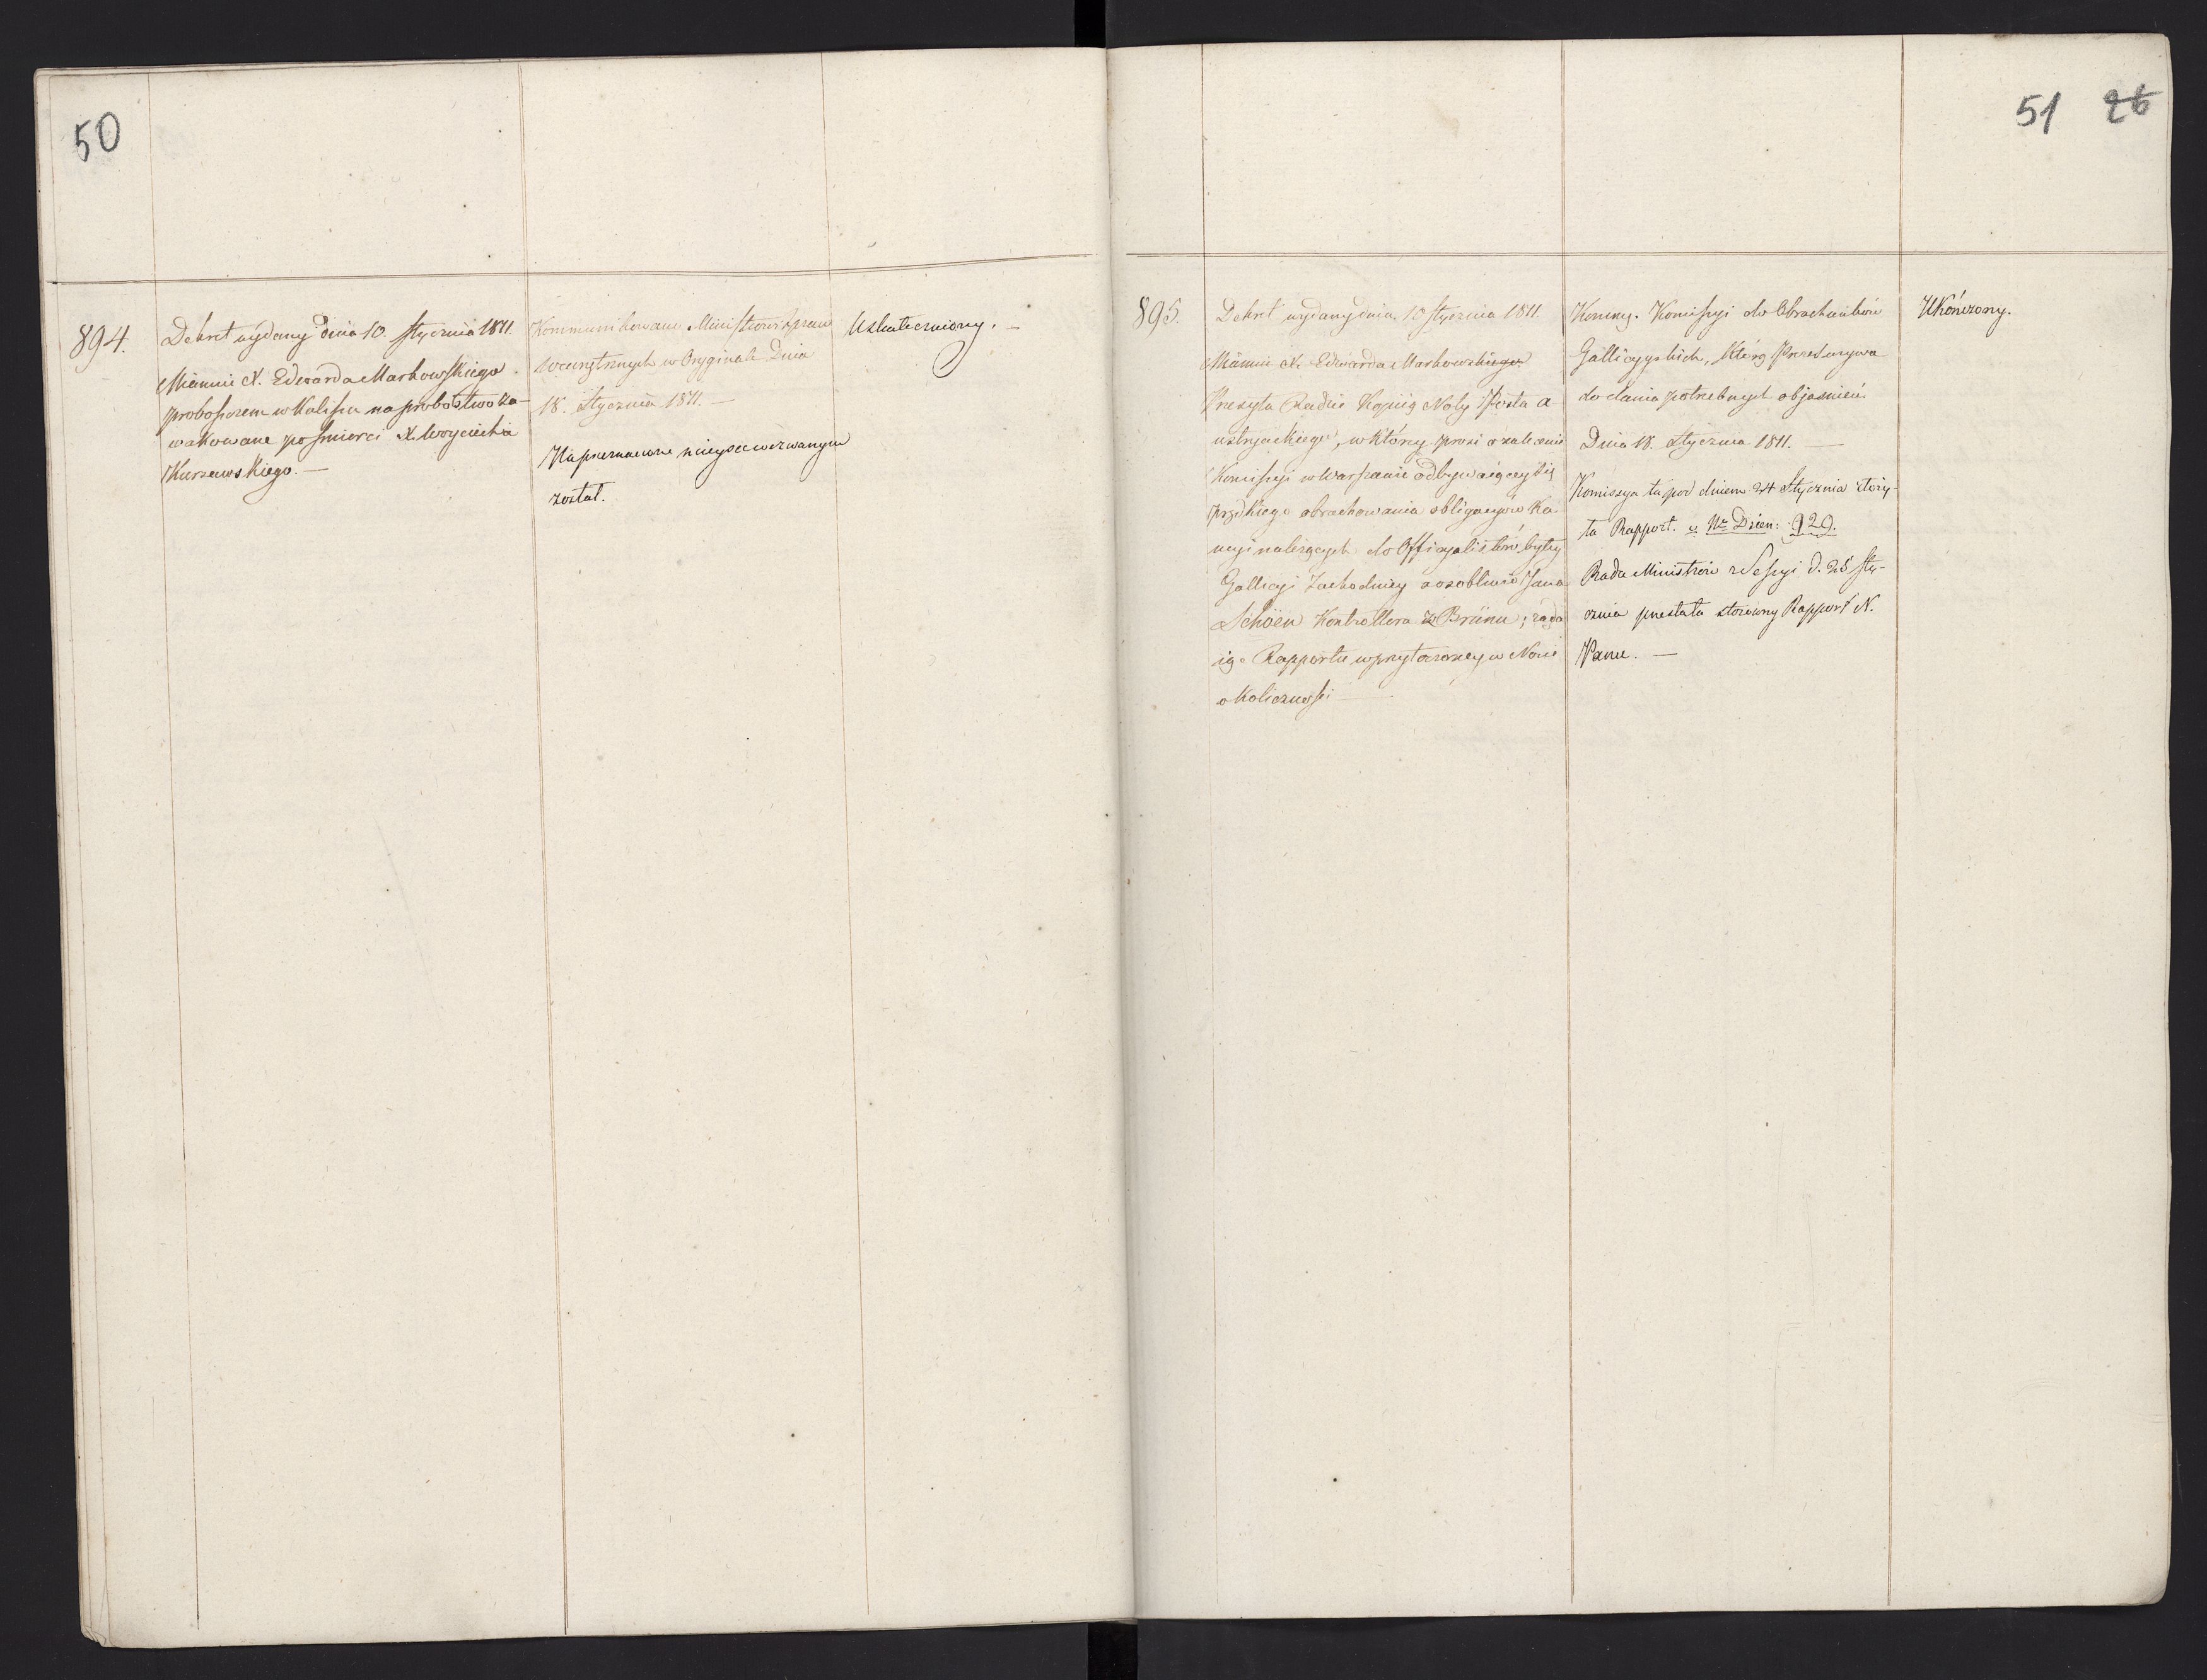 50
894.
Dekret wydany dnia 10. stycznia 1811.
Mianuie X. Edwarda Markowskiego
proboszczem w Kaliszu na probostwo za-
wakowane po śmierci X. Woyciecha
Kurzewskiego. —
Kommunikowane Ministrowi spraw
wewnętrznych w Oryginale Dnia
18. Stycznia 1811. —
Na przeznaczone mieysce wezwanym
został.
Uskuteczniony. —
51 26
895.
Dekret wydany dnia 10 stycznia 1811.
Mianuie X. Edwarda Markowskiego
Przesyła Radzie Kopiią Noty Posła a-
ustryackiego, w którey prosi o zalecenie
Komissyi w Warszawie odbywaiącey się
prędkiego obrachowania obligacyów kau-
cyi należących do Officyalistów byłey
Gallicyi Zachodniey a osobliwie Jana
Schöen Kontrollera z Brünu; żąda
ią. Rapportu w przytoczoney w Nocie
okoliczności —
Kommq. Komissyi do Obrachunków
Gallicyyskich, którą Prezes wzywa
do dania potrzebnych objaśnień
Dnia 18. Stycznia 1811. —
Komissya ta pod dniem 24 Stycznia złoży-
ła Rapport. v. Nr Dzien: 929.
Rada Ministrów z Sessyi d. 25 Sty-
cznia przesłała stosowny Rapport N.
Panu. —
Ukończony.